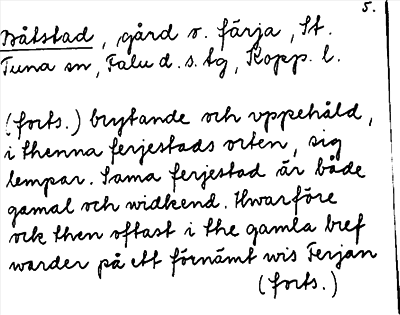 5.
Båtstad, gård o. färja, St.
Tuna sn, Falu d. s. tg, Kopp. l.
(forts.) brytande och uppehåld,
i thenna ferjestads orten, sig
lempar. Sama ferjestad är både
gamal och widkend. Hwarföre
ock then oftast i the gamla bref
warder på ett förnämt wis Ferjan
(forts.)